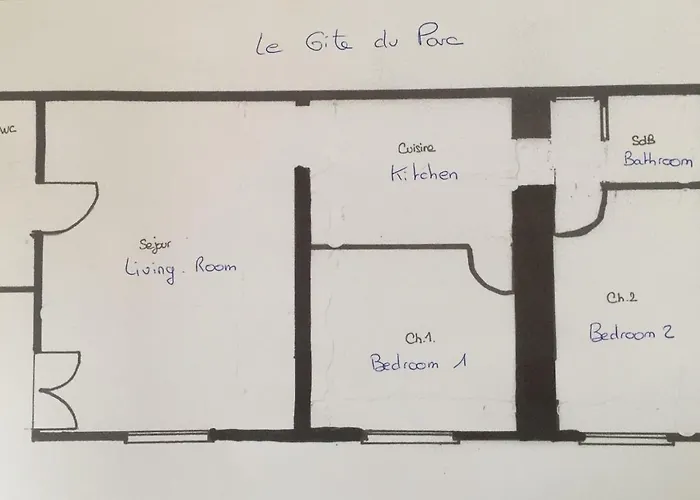 Le Gite du Parc
WC
Cuisine
Kitchen
SdB
Bathroom
Sejour
Living. Room
Ch.1.
Bedroom 1
Ch.2
Bedroom 2